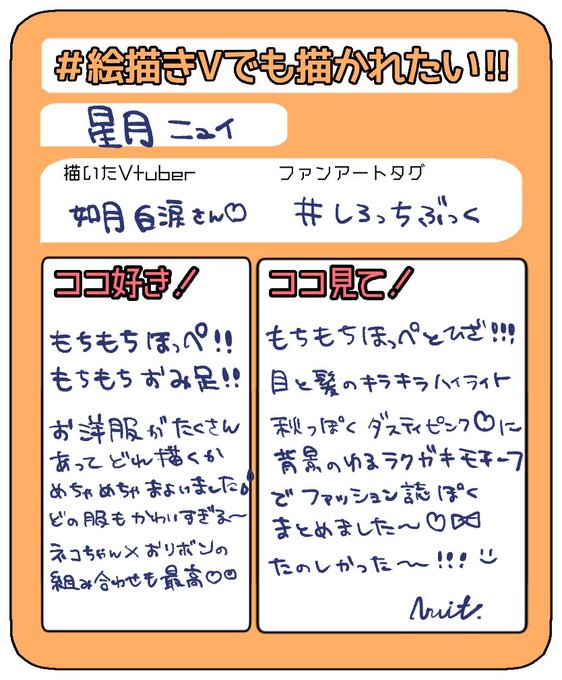 #絵描きVでも描かれたい!!
星月ニュイ
描いたVtuber
ファンアートタグ
如月白涙さん♡
#しろっちぶっく
ココ好き!
もちもちほっぺ!!
もちもちおみ足!!
お洋服がたくさん
あってどれ描くか
めちゃめちゃまよいました
どの服もかわいすぎる〜
ネコちゃん×おリボンの
組み合わせも最高♡
ココ見て!
もちもちほっぺとひざ!!!
目と髪のキラキラハイライト
秋っぽくダスティピンク♡に
背景のゆるラクガキモチーフ
でファッション誌ぽく
まとめました〜♡
たのしかった〜!!!
Nuit.